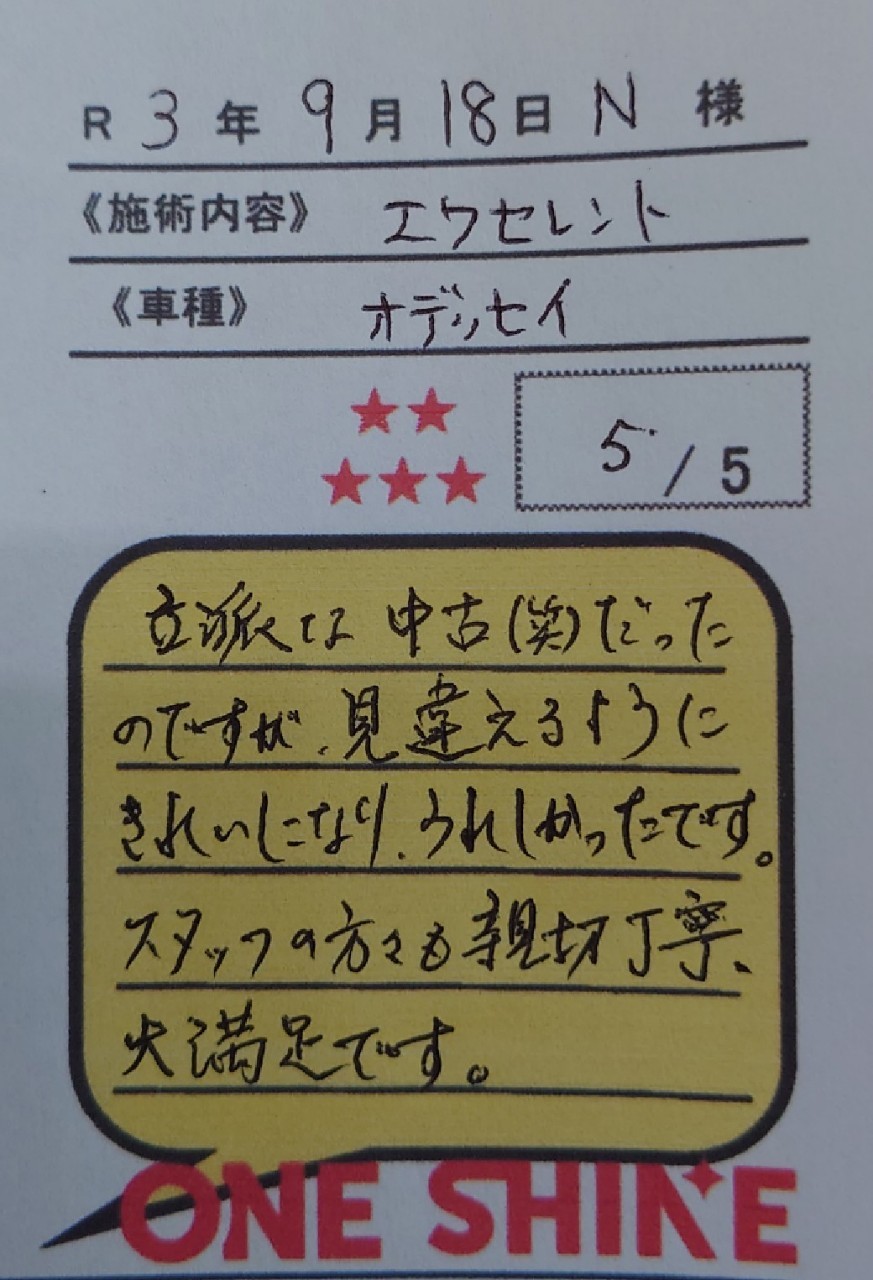 R 3 年 9 月 18 日 N 様
《施術内容》 エクセレント
《車種》 オデッセイ
5 / 5
立派な 中古(笑)だった
のですが、見違えるように
きれいになり、うれしかったです。
スタッフの方々も親切丁寧、
大満足です。
ONE SHINE